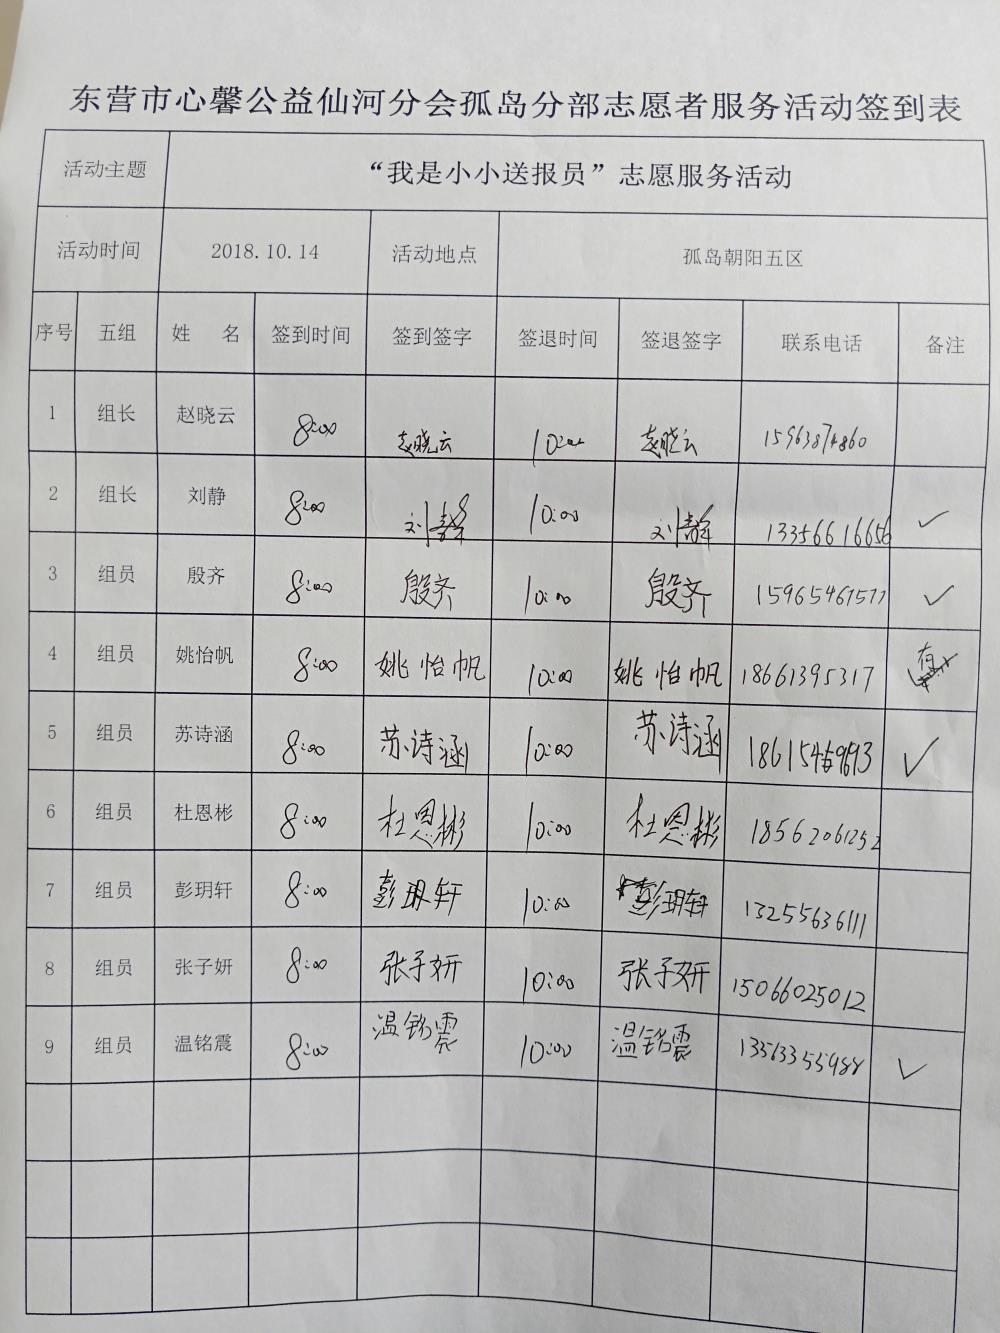 东营市心馨公益仙河分会孤岛分部志愿者服务活动签到表
活动主题 “我是小小送报员”志愿服务活动
活动时间 2018.10.14 活动地点 孤岛朝阳五区
序号 五组 姓 名 签到时间 签到签字 签退时间 签退签字 联系电话 备注
1 组长 赵晓云 8:00 赵晓云 10:00 赵晓云 15963874860
2 组长 刘静 8:00 刘静 10:00 刘静 13356616656 ✓
3 组员 殷齐 8:00 殷齐 10:00 殷齐 ✓
4 组员 姚怡帆 8:00 姚怡帆 10:00 姚怡帆 18661395317 有
5 组员 苏诗涵 8:00 苏诗涵 10:00 苏诗涵 ✓
6 组员 杜恩彬 8:00 杜恩彬 10:00 杜恩彬 18562061252
7 组员 彭玥轩 8:00 彭玥轩 10:00 彭玥轩 13255636111
8 组员 张子妍 8:00 张子妍 10:00 张子妍 15066025012
9 组员 温铭震 8:00 温铭震 10:00 温铭震 13563355988 ✓